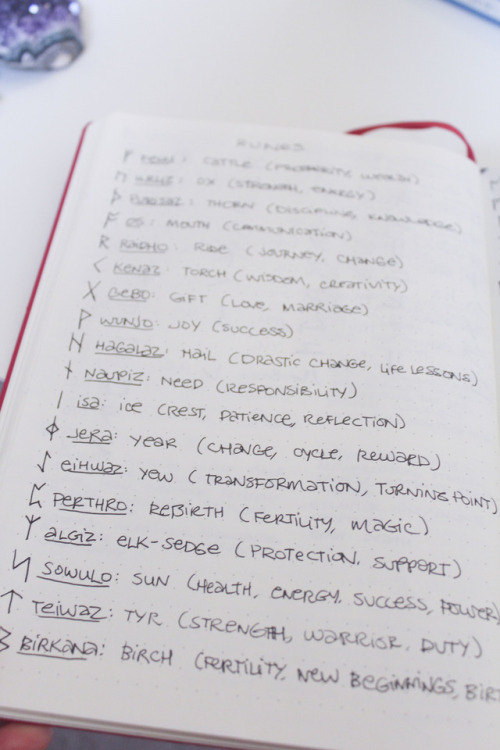 RUNES
ᚠ FEHU: CATTLE (PROSPERITY, WEALTH)
ᚢ URUZ: OX (STRENGTH, ENERGY)
ᚦ : THORN (DISCIPLINE, KNOWLEDGE)
ᚩ OS: MOUTH (COMMUNICATION)
ᚱ RADHO: RIDE (JOURNEY, CHANGE)
ᚲ KENAZ: TORCH (WISDOM, CREATIVITY)
ᚷ GEBO: GIFT (LOVE, MARRIAGE)
ᚹ WUNJO: JOY (SUCCESS)
ᚺ HAGALAZ: HAIL (DRASTIC CHANGE, LIFE LESSONS)
ᚾ NAUPIZ: NEED (RESPONSIBILITY)
ᛁ ISA: ICE (REST, PATIENCE, REFLECTION)
ᛄ JERA: YEAR (CHANGE, CYCLE, REWARD)
ᛇ EIHWAZ: YEW (TRANSFORMATION, TURNING POINT)
ᛈ PERTHRO: REBIRTH (FERTILITY, MAGIC)
ᛉ ALGIZ: ELK-SEDGE (PROTECTION, SUPPORT)
ᛋ SOWULO: SUN (HEALTH, ENERGY, SUCCESS, POWER)
ᛏ TEIWAZ: TYR (STRENGTH, WARRIOR, DUTY)
ᛒ BIRKANA: BIRCH (FERTILITY, NEW BEGINNINGS, BIRT